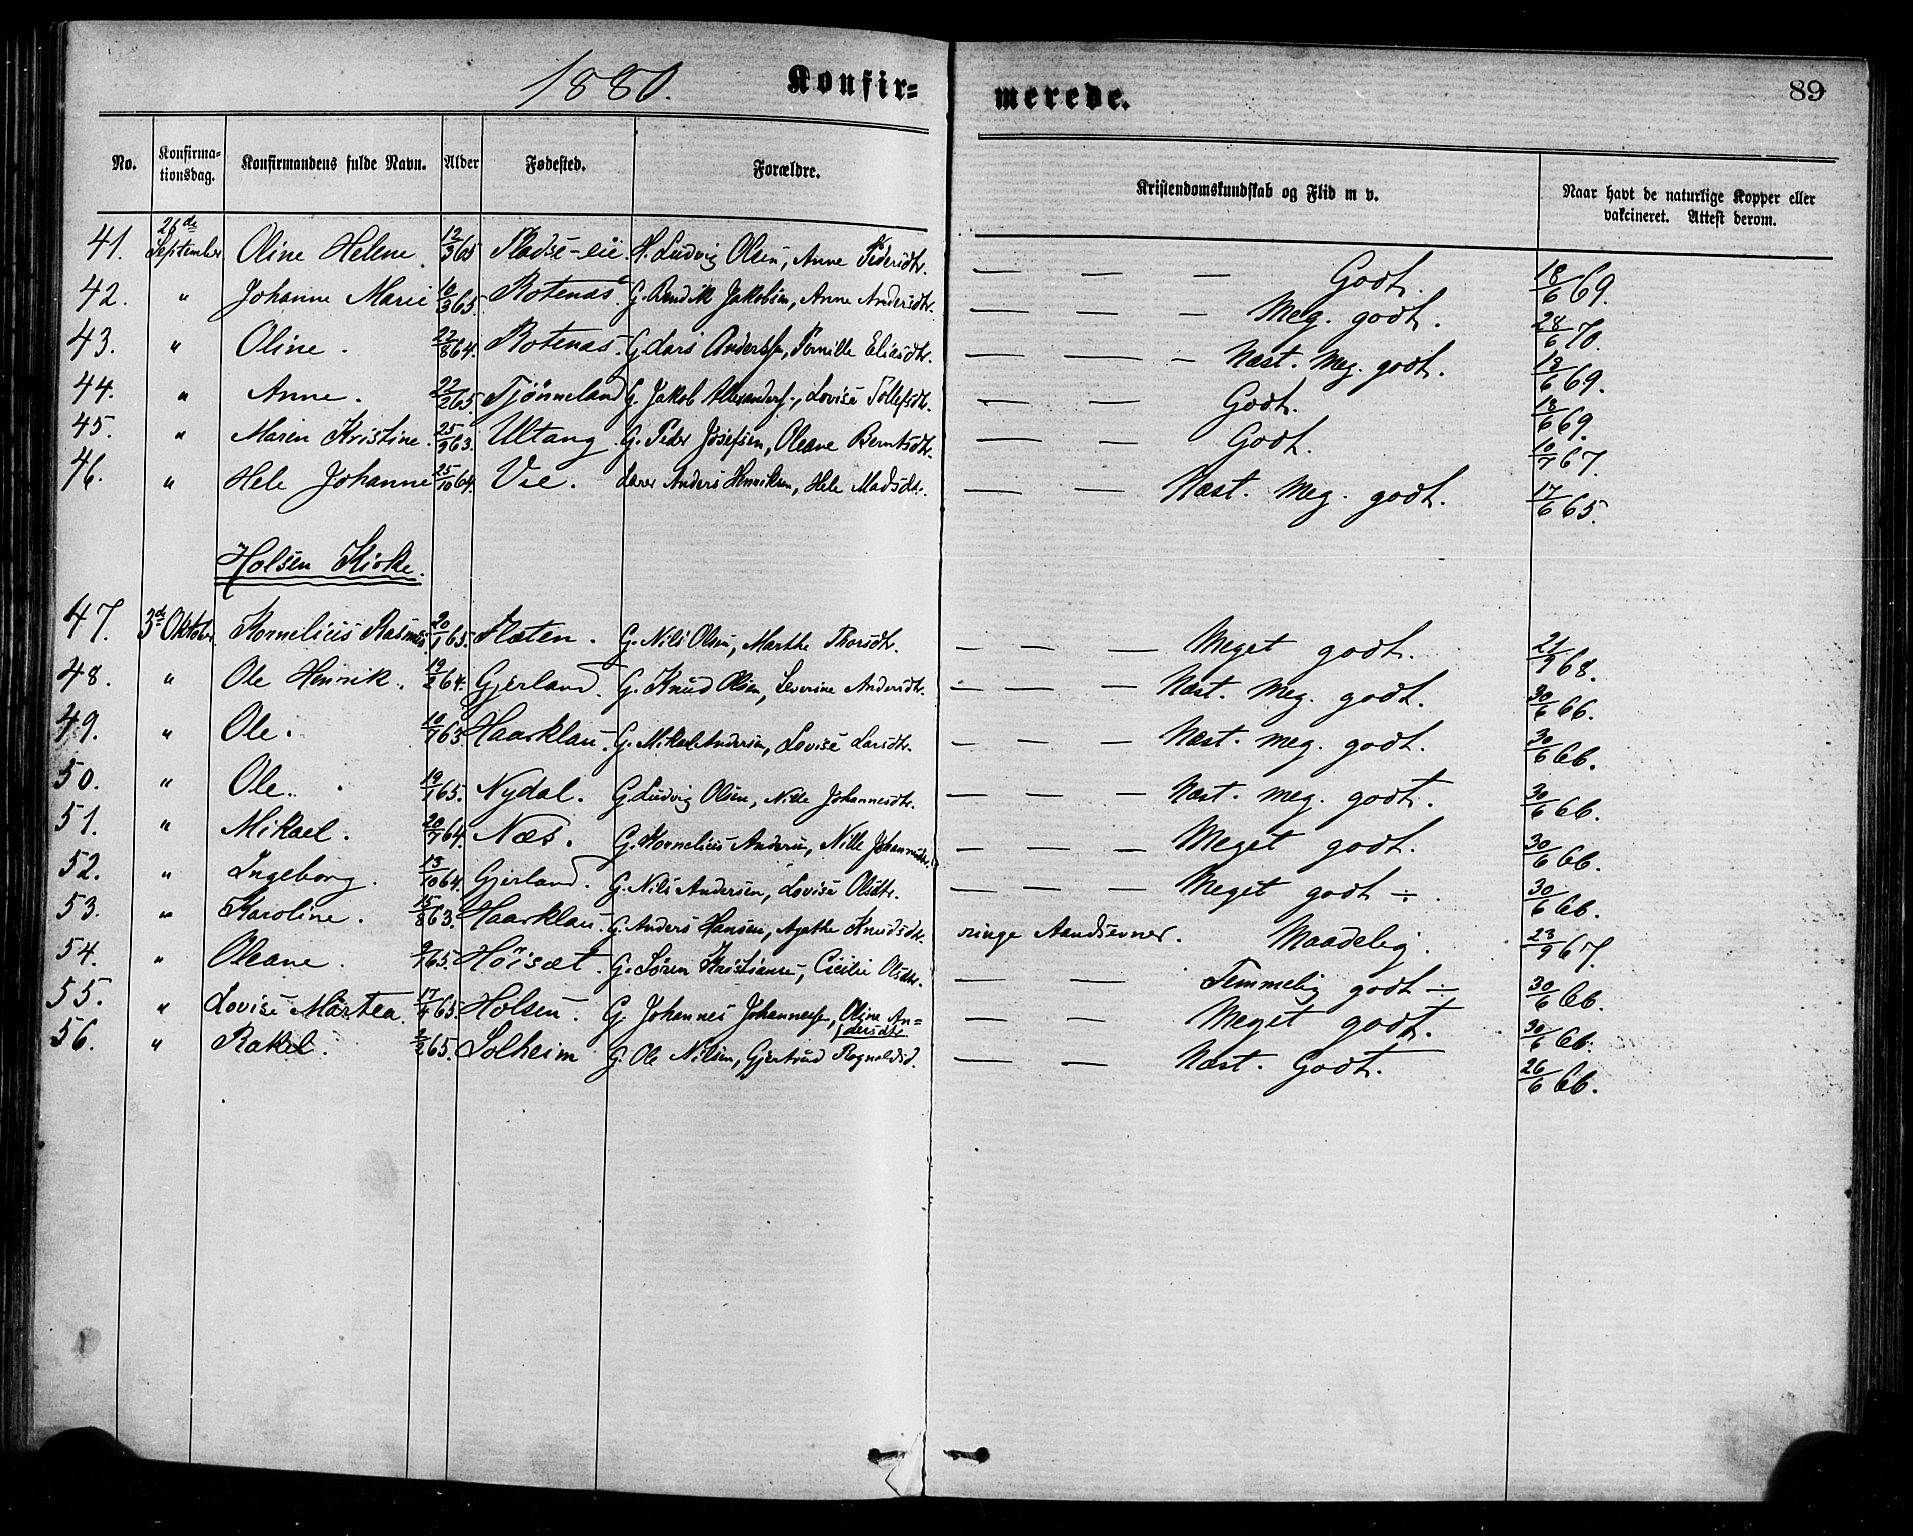 1880. Konfir= merede. 89
No. Konfirma-tionsdag. Konfirmandens fulde Navn. Alder Fødested. Forældre. Kristendomskundskab og Flid m v. Naar havt de naturlige Kopper eller vakcineret. Attest derom.
41. 26de September Oline Helene. 12/3 65 Pladse-eie. H. Ludvig Olsen, Anne Pedersdtr. — — — Godt. 18/6 69.
42. " Johanne Marie 10/3 65. Rotenæs. G. Bendik Jakobsen, Anne Andersdtr. — — — Meg. godt. 28/6 70.
43. " Oline. 22/8 64. Rotenæs. G. Lars Anderssen, Pernille Eliasdtr. — — — — Næst. meg. godt. 18/6 69.
44. " Anne. 22/2 65. Tjønneland G. Jakob Alexanders., Lovise Tollefsdtr. — — Godt. 18/6 69.
45. " Maren Kristine. 25/9 63. Ultang G. Peder Josefsen, Oleane Berntsdtr. — — Godt. 10/7 67.
46. " Hele Johanne 25/10 64. Vie. Lærer Anders Henriksen, Hele Madsdtr. — — Næst. Meg. godt. 17/6 65.
Holsen Kirke.
47. 3de Oktober Kornelius Rasmus 20/1 65. Flaten. G. Nils Olsen, Marthe Thorsdtr. — — — Meget godt. 21/9 68.
48. " Ole Henrik. 19/2 64. Gjerland. G. Knud Olsen, Severine Andersdtr. — — — Næst. Meg. godt. 30/6 66.
49. " Ole. 10/7 63. Haarklau. G. Mikal Andersen, Lovise Larsdtr. — — — Næst. meg. godt. 30/6 66.
50. " Ole. 19/1 65. Nydal. G. Ludvig Olsen, Nille Johannesdtr. — — — Næst. meg. godt. 30/6 66.
51. " Mikael. 20/7 64. Næs. G. Kornelius Andersen, Nille Johannesdtr. — — — Meget godt. 30/6 66.
52. " Ingeborg. 13/10 64. Gjerland. G. Nils Andersen, Lovise Olsdtr. — — — Meget godt ÷. 30/6 66.
53. " Karoline. 15/8 63. Haarklau. G. Anders Hansen, Agathe Knudsdtr. ringe Aandsevner. Maadelig. 23/9 67.
54. " Oleane. 65. Høisæt. G. Søren Kristiansen, Cicilie Olsdtr. — — Temmelig godt ÷ 30/6 66.
55. " Lovise Martea. 17/4 65. Holsen. G. Johannes Johannessen, Oline An=
dersdtr. — — Meget godt. 30/6 66.
56. " Rakel. 2/2 65. Solheim G. Ole Nilsen, Gjertrud Ragnaldsd. — — Næst. Godt. 26/6 66.